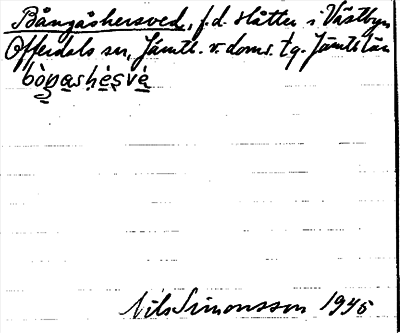 Bångåshersved, f.d. slåtter i Västbyn
Offerdals sn, Jämtl. v. doms. tg. Jämtl. län
bòṉa̱sḥe̱ṣvè̱
Nils Simonsson 1945